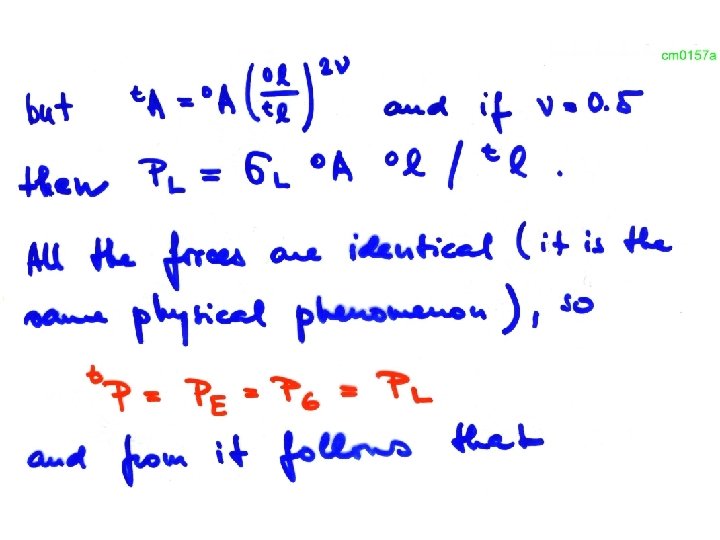 cm0157a
but ᵗA = ⁰A (⁰l / ᵗl)²ᵛ and if ν = 0.5
then P_L = σ_L ⁰A ⁰l / ᵗl .
All the forces are identical (it is the
same physical phenomenon), so
ᵗP = P_E = P_G = P_L
and from it follows that